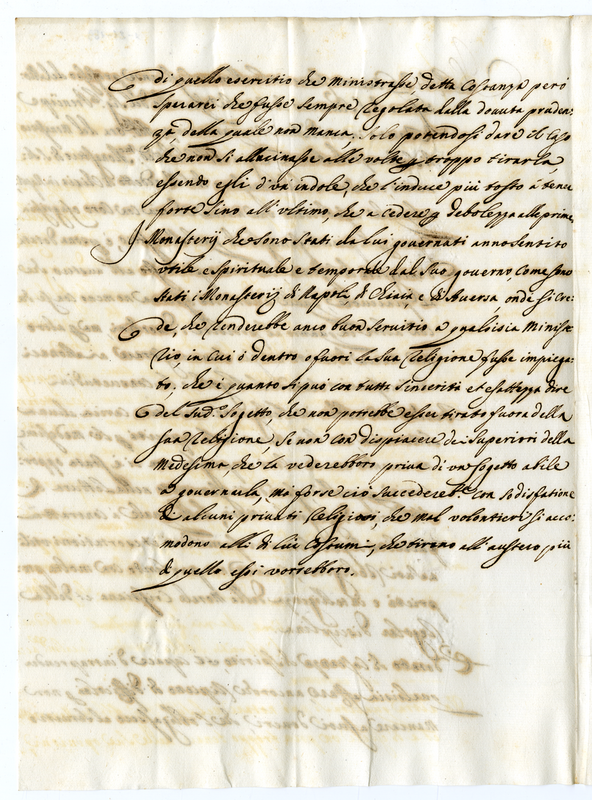 di quello esercitio che Ministrasse, detta Costanza però
sperarei che fusse sempre regolata dalla dovuta pruden-
za, della quale non manca, solo potendosi dare il caso
che non si allucinasse alle volte p troppo tirarla,
essendo egli d'un indole, che l'induce più tosto à tener
forte sino all'ultimo, che a cedere p debolezza alle prime,
I Monasterij che sono stati da lui governati anno sentito
utile e spirituale e temporale dal suo governo, come sono
stati i Monasterij di Napoli, di Chiaia, e di Aversa onde si cre-
de, che renderebbe anco buon servitio a qualsisia Ministe-
rio, in cui ò dentro o fuori la sua Religione fusse impiega-
to, che è quanto si può con tutta sincerità et esattezza dire
del Sud.o Sogetto, che non potrebbe esser tirato fuora della
sua Religione, se non con dispiacere dei Superiori della
Medesima, che la vederebbero priva di un sogetto abile
a governarla, ma forse ciò succedereb.e con sodisfatione
di alcuni privati Religiosi, che mal volontieri si acco-
modono alli di lui costumi, che tirano all'austero più
di quello essi vorrebbero.